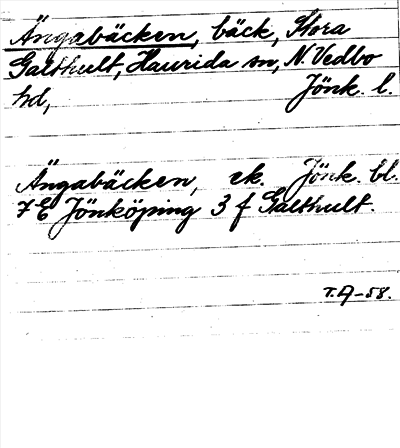 Ängabäcken, bäck, Stora
Galthult, Haurida sn, N. Vedbo
hd, Jönk. l.
Ängabäcken, ek. Jönk. bl.
7E Jönköping 3 f Galthult.
T.A-58.